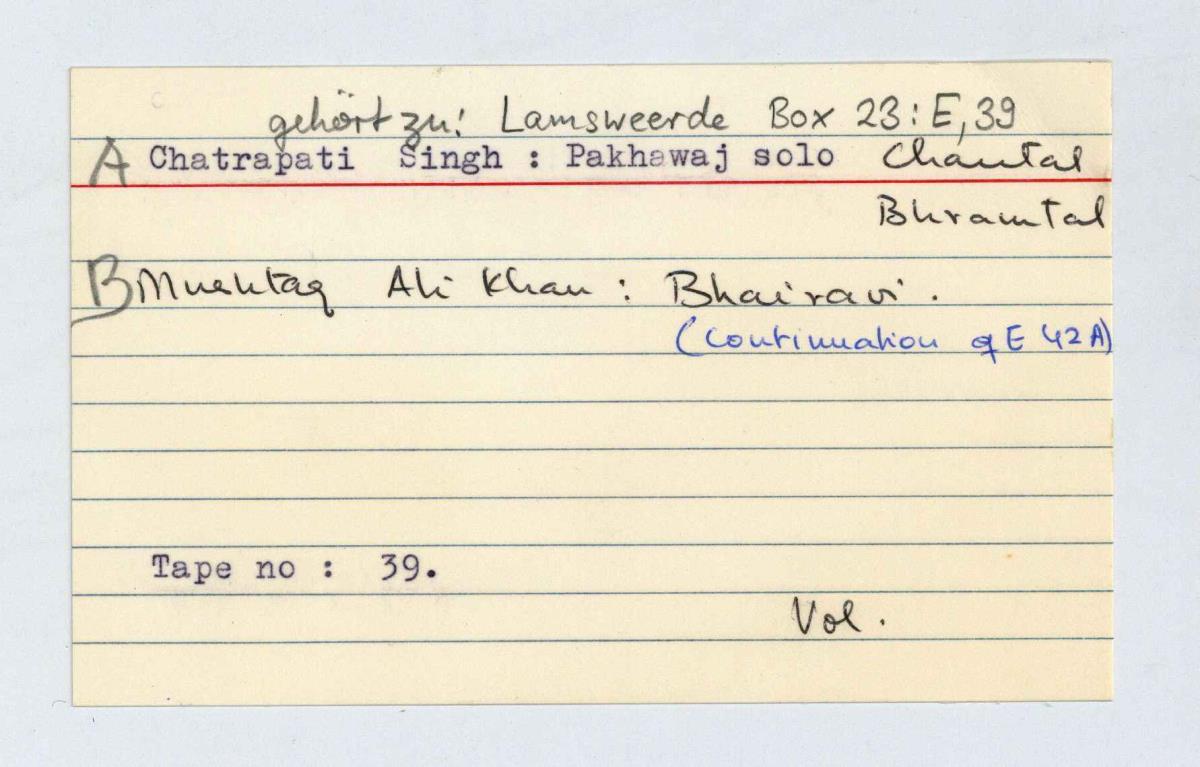 gehört zu: Lamsweerde Box 23: E, 39
A Chatrapati Singh : Pakhawaj solo Chautal
Bhramtal
B Mushtaq Ali Khan : Bhairavi.
(Continuation of E 42 A)
Tape no : 39.
Vol.